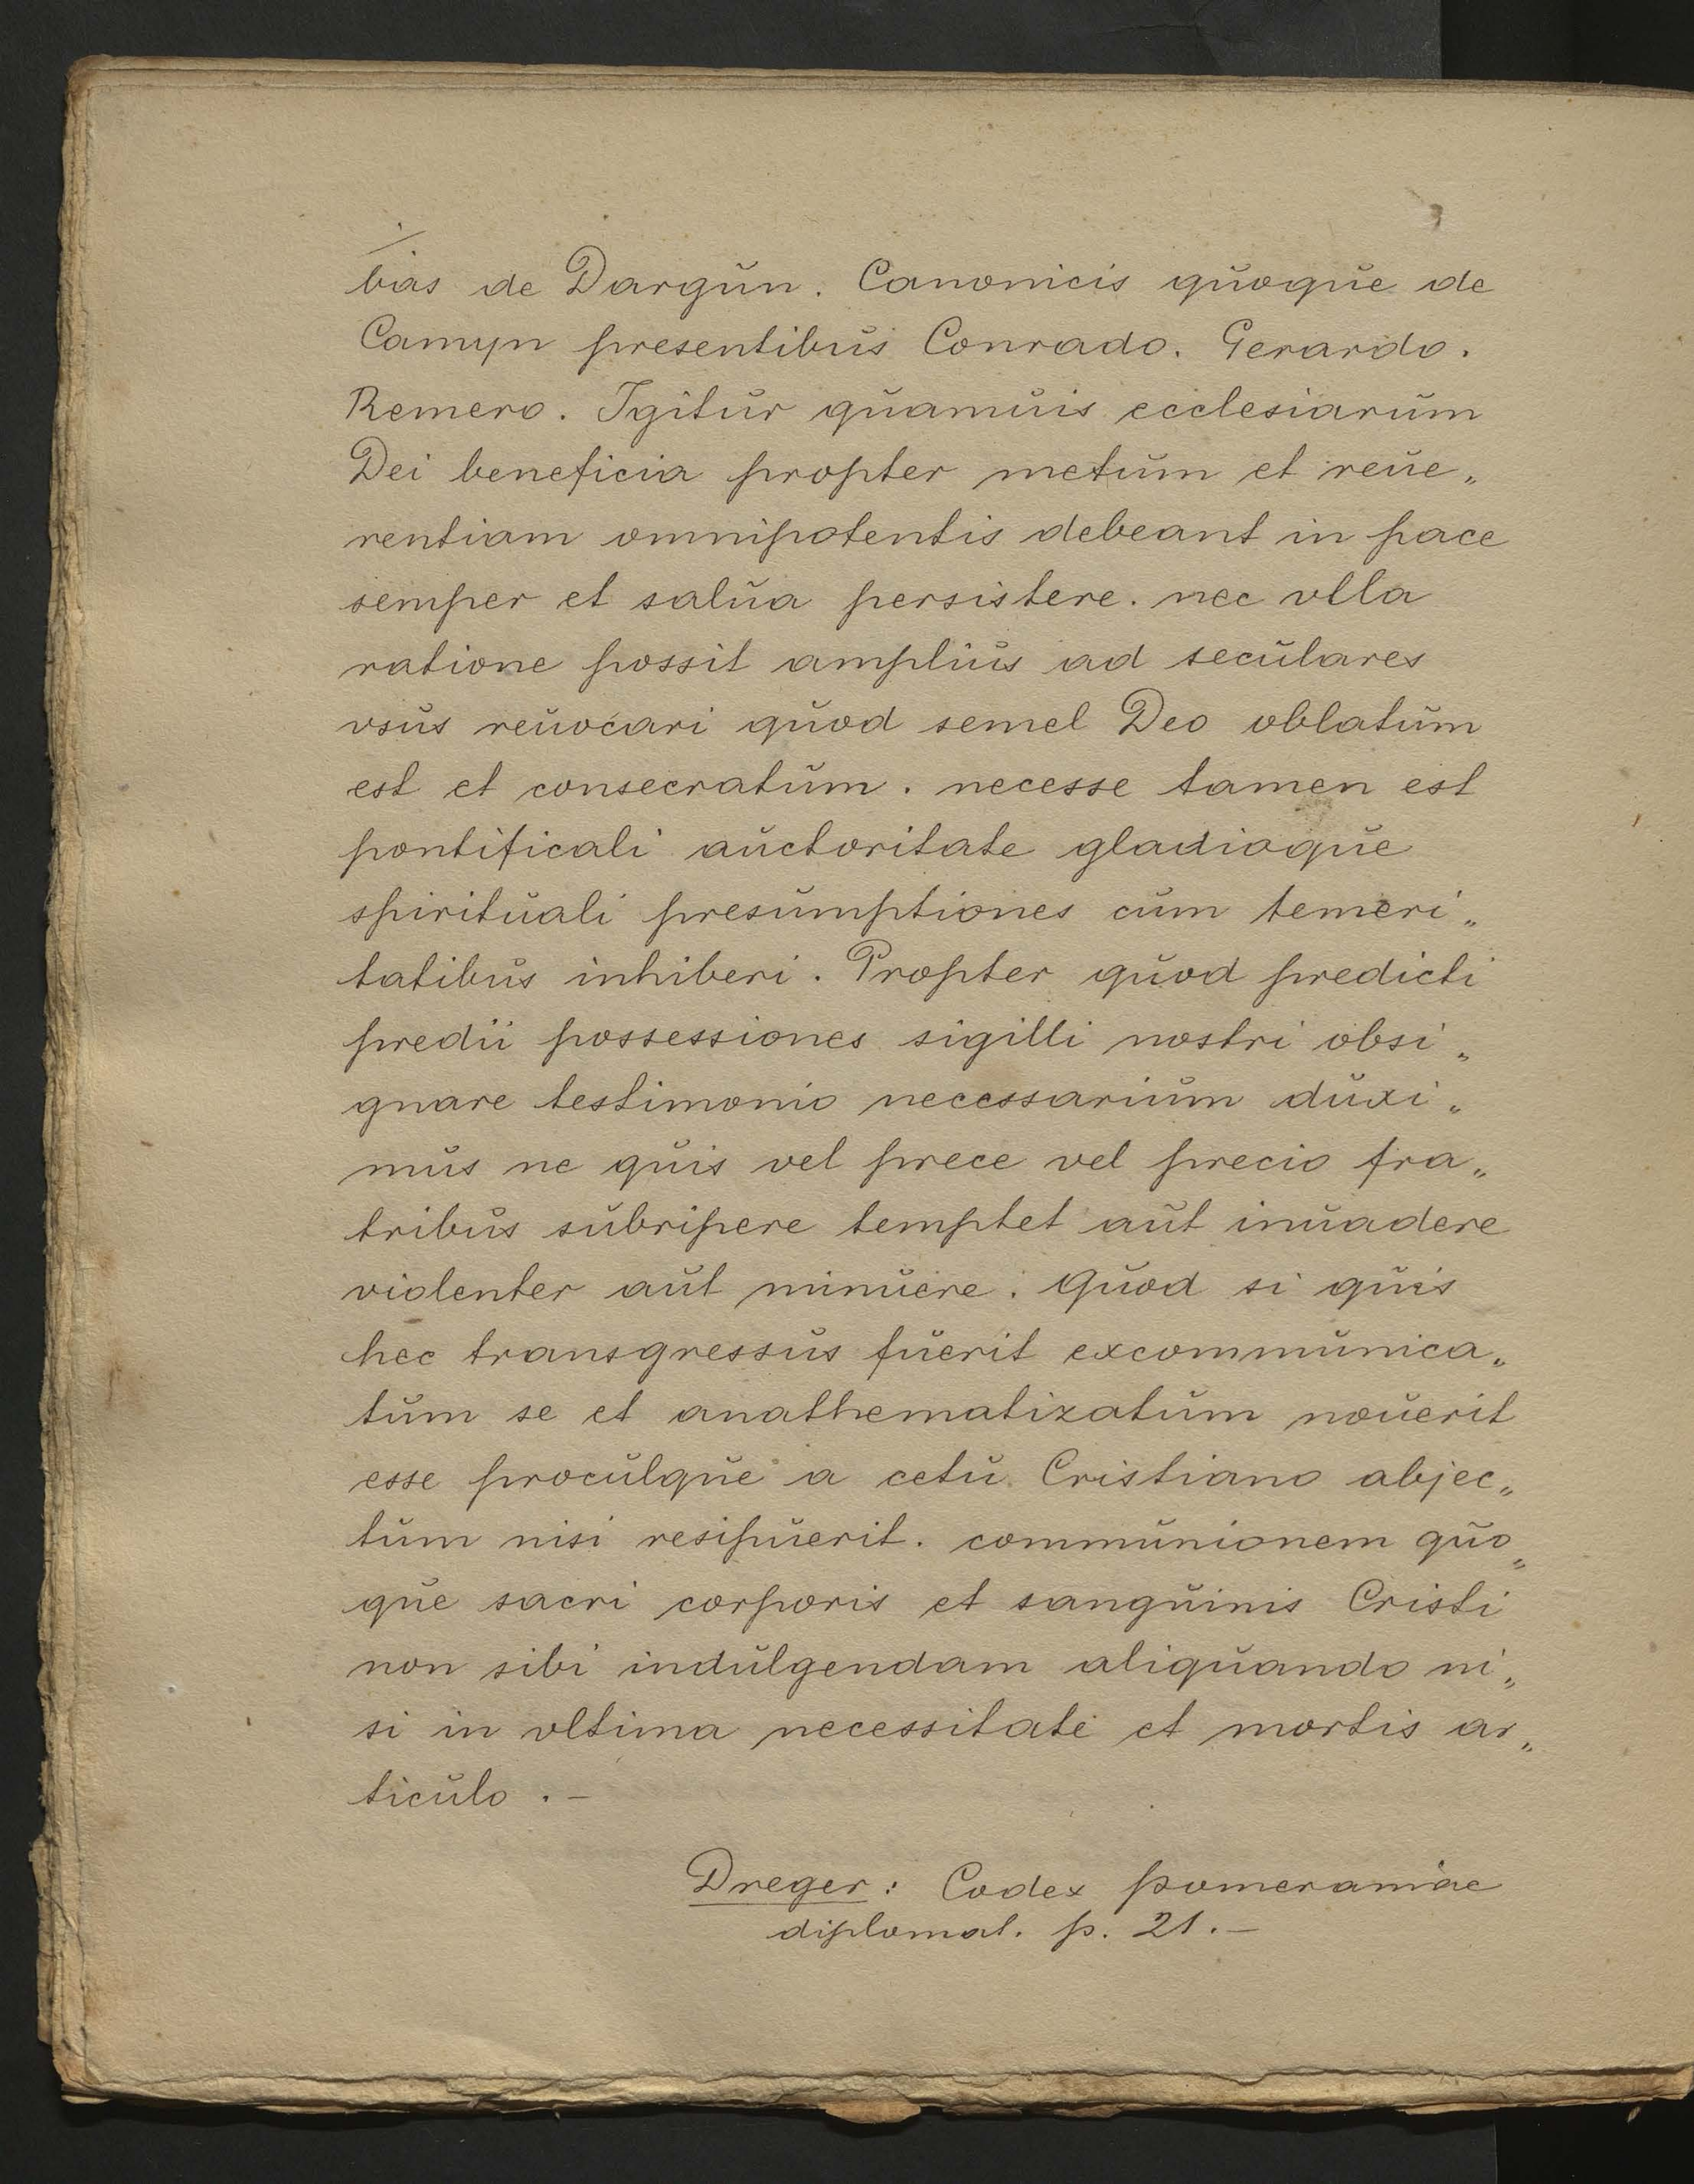 bas de Dargun. Canonicis quoque de
Camyn presentibus Conrado. Gerardo.
Remero. Igitur quamuis ecclesiarum
Dei beneficia propter metum et reue„
rentiam omnipotentis debeant in pace
semper et salua persistere. nec vlla
ratione possit amplius ad seculares
vsus reuocari quod semel Deo oblatum
est et consecratum. necesse tamen est
pontificali auctoritate gladioque
spirituali presumptiones cum temeri„
tatibus inhiberi. Propter quod predicti
predii possessiones sigilli nostri obsi„
gnare testimonio necessarium duxi„
mus ne quis vel prece vel precio fra„
tribus subripere temptet aut inuadere
violenter aut minuere. Quod si quis
hec transgressus fuerit excommunica„
tum se et anathematizatum nouerit
esse proculque a cetu Cristiano abjec„
tum nisi resipuerit. communionem quo„
que sacri corporis et sanguinis Cristi
non sibi indulgendam aliquando ni„
si in vltima necessitate et mortis ar„
ticulo. –
Dreger: Codex pomeraniae
diplomat. p. 21. –